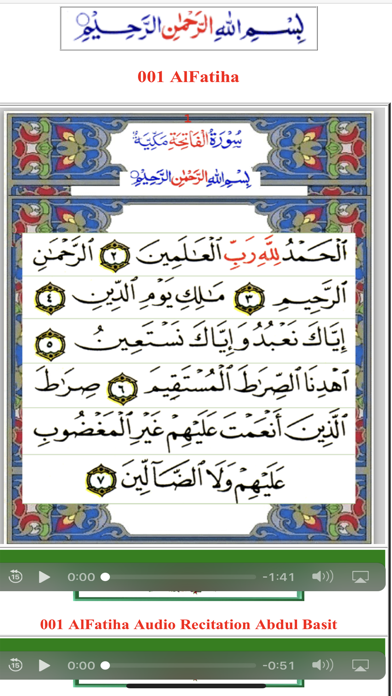 بِسْمِ اللهِ الرَّحْمٰنِ الرَّحِيْمِ
001 AlFatiha
1
سُوْرَةُ الْفَاتِحَةِ مَكِّيَّةٌ
بِسْمِ اللهِ الرَّحْمٰنِ الرَّحِيْمِ
اَلْحَمْدُ لِلّٰهِ رَبِّ الْعَـٰلَمِينَ ٢ الرَّحْمَـٰنِ
الرَّحِيمِ ٣ مَـٰلِكِ يَوْمِ الدِّينِ ٤
إِيَّاكَ نَعْبُدُ وَإِيَّاكَ نَسْتَعِينُ ٥
اهْدِنَا الصِّرَاطَ الْمُسْتَقِيمَ ٦ صِرَاطَ
الَّذِينَ أَنْعَمْتَ عَلَيْهِمْ غَيْرِ الْمَغْضُوبِ
عَلَيْهِمْ وَلَا الضَّآلِّينَ ٧
15 0:00 -1:41
001 AlFatiha Audio Recitation Abdul Basit
15 0:00 -0:51